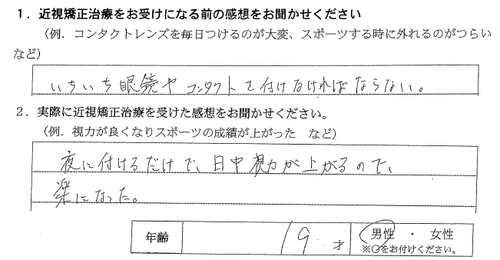 １．近視矯正治療をお受けになる前の感想をお聞かせください
（例．コンタクトレンズを毎日つけるのが大変、スポーツする時に外れるのがつらい
など）
いちいち眼鏡やコンタクトを付けなければならない。
２．実際に近視矯正治療を受けた感想をお聞かせください。
（例．視力が良くなりスポーツの成績が上がった　など）
夜に付けるだけで、日中視力が上がるので、
楽になった。
年齢　19　才　男性　・　女性
※○をお付けください。